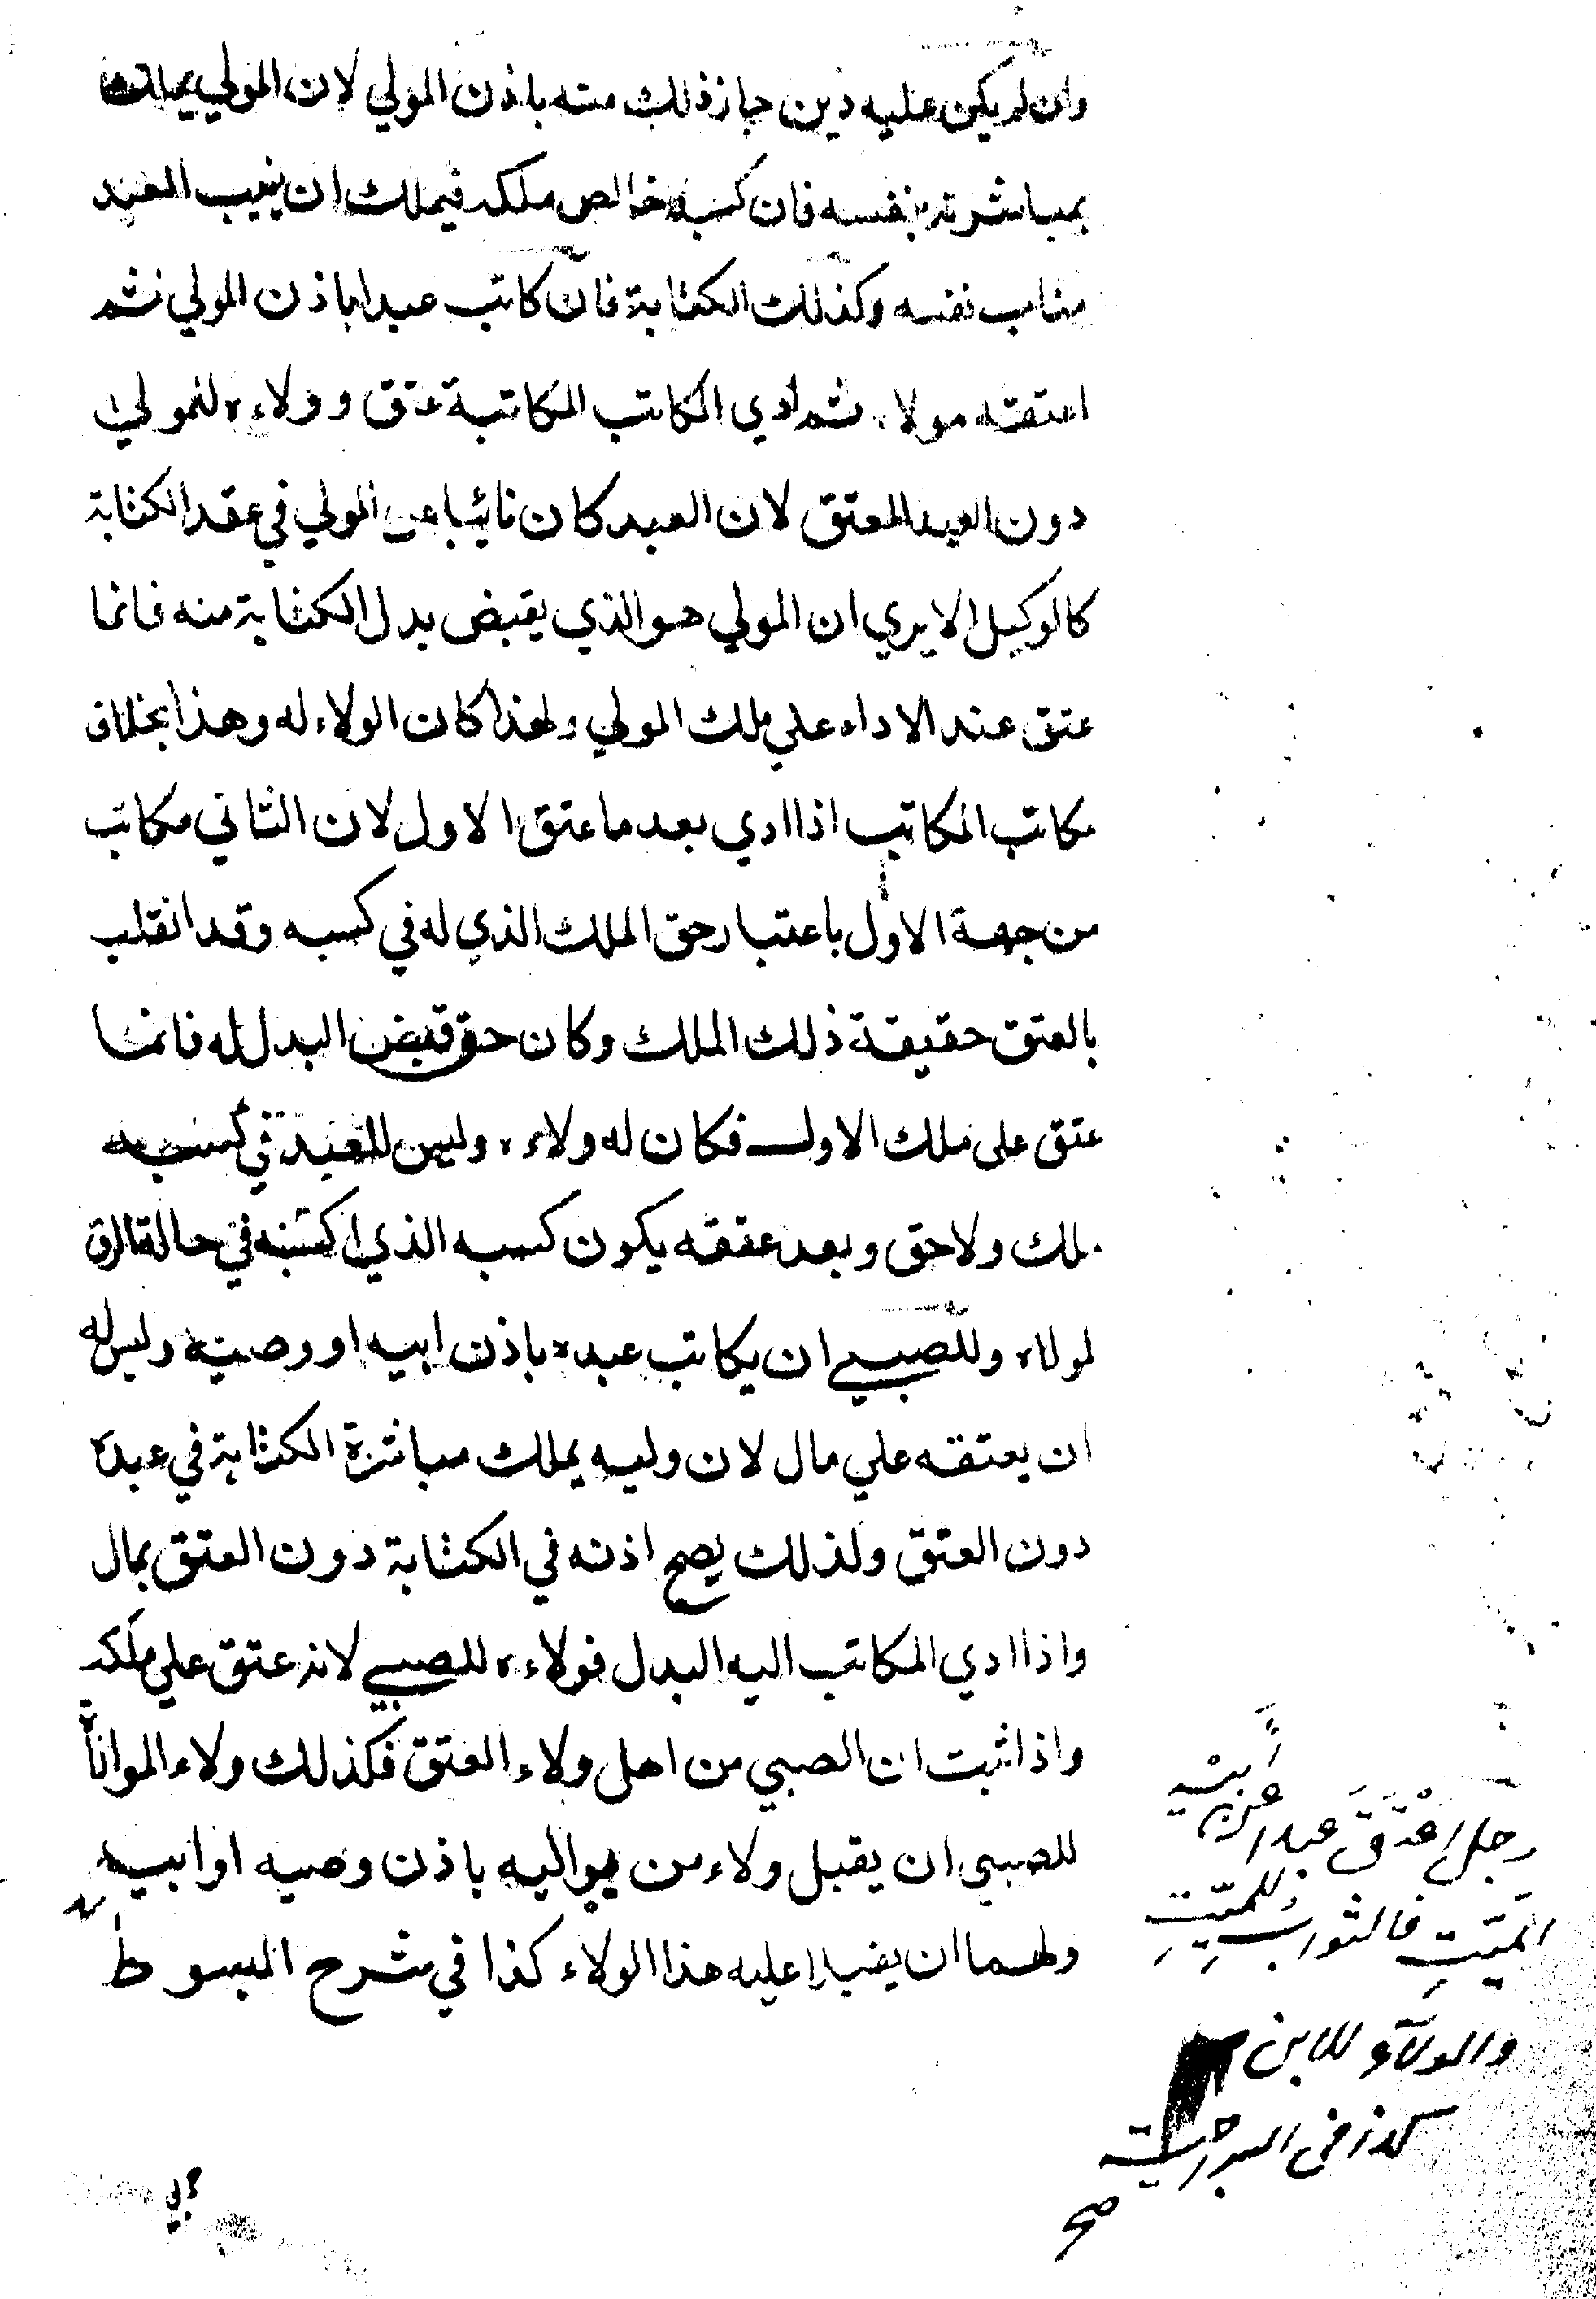 وان لم يكن عليه دين جاز ذلك منه باذن المولي لان المولي يملك
بمباشرته بنفسه فان كسبه خالص ملكه فيملك ان ينيب العبد
مناب نفسه وكذلك الكتابة فان كاتب عبدا باذن المولي ثم
اعتقه مولاه ثم ادي المكاتب المكاتبة عتق وولاءه للمولي
دون العبد المعتق لان العبد كان نائبا عن المولي في عقد الكتابة
كالوكيل الا يري ان المولي هو الذي يقبض بدل الكتابة منه فانما
عتق عند الاداء علي ملك المولي ولهذا كان الولاء له وهذا بخلاف
مكاتب المكاتب اذا ادي بعد ما عتق الاول لان الثاني مكاتب
من جهة الاول باعتبار حق الملك الذي له في كسبه وقد انقلب
بالعتق حقيقة ذلك الملك وكان حق قبض البدل له فانما
عتق على ملك الاول فكان له ولاءه وليس للعبد في كسبه
ملك ولا حق وبعد عتقه يكون كسبه الذي اكتسبه في حالة الرق
لمولاه وللصبي ان يكاتب عبده باذن ابيه او وصيه وليس له
ان يعتقه علي مال لان وليه يملك مباشرة الكتابة في عبده
دون العتق ولذلك يصح اذنه في الكتابة دون العتق بمال
واذا ادي المكاتب اليه البدل فولاءه للصبي لانه عتق علي ملكه
واذا ثبت ان الصبي من اهل ولاء العتق فكذلك ولاء الموالاة
للصبي ان يقبل ولاء من يواليه باذن وصيه او ابيه
ولهما ان يقبلا عليه هذا الولاء كذا في شرح المبسوط
رجل اعْتَقَ عبدا عن ابيه
الميّتِ فالثواب للميّتِ
والولآء للابن
كذا في السراجية
صح